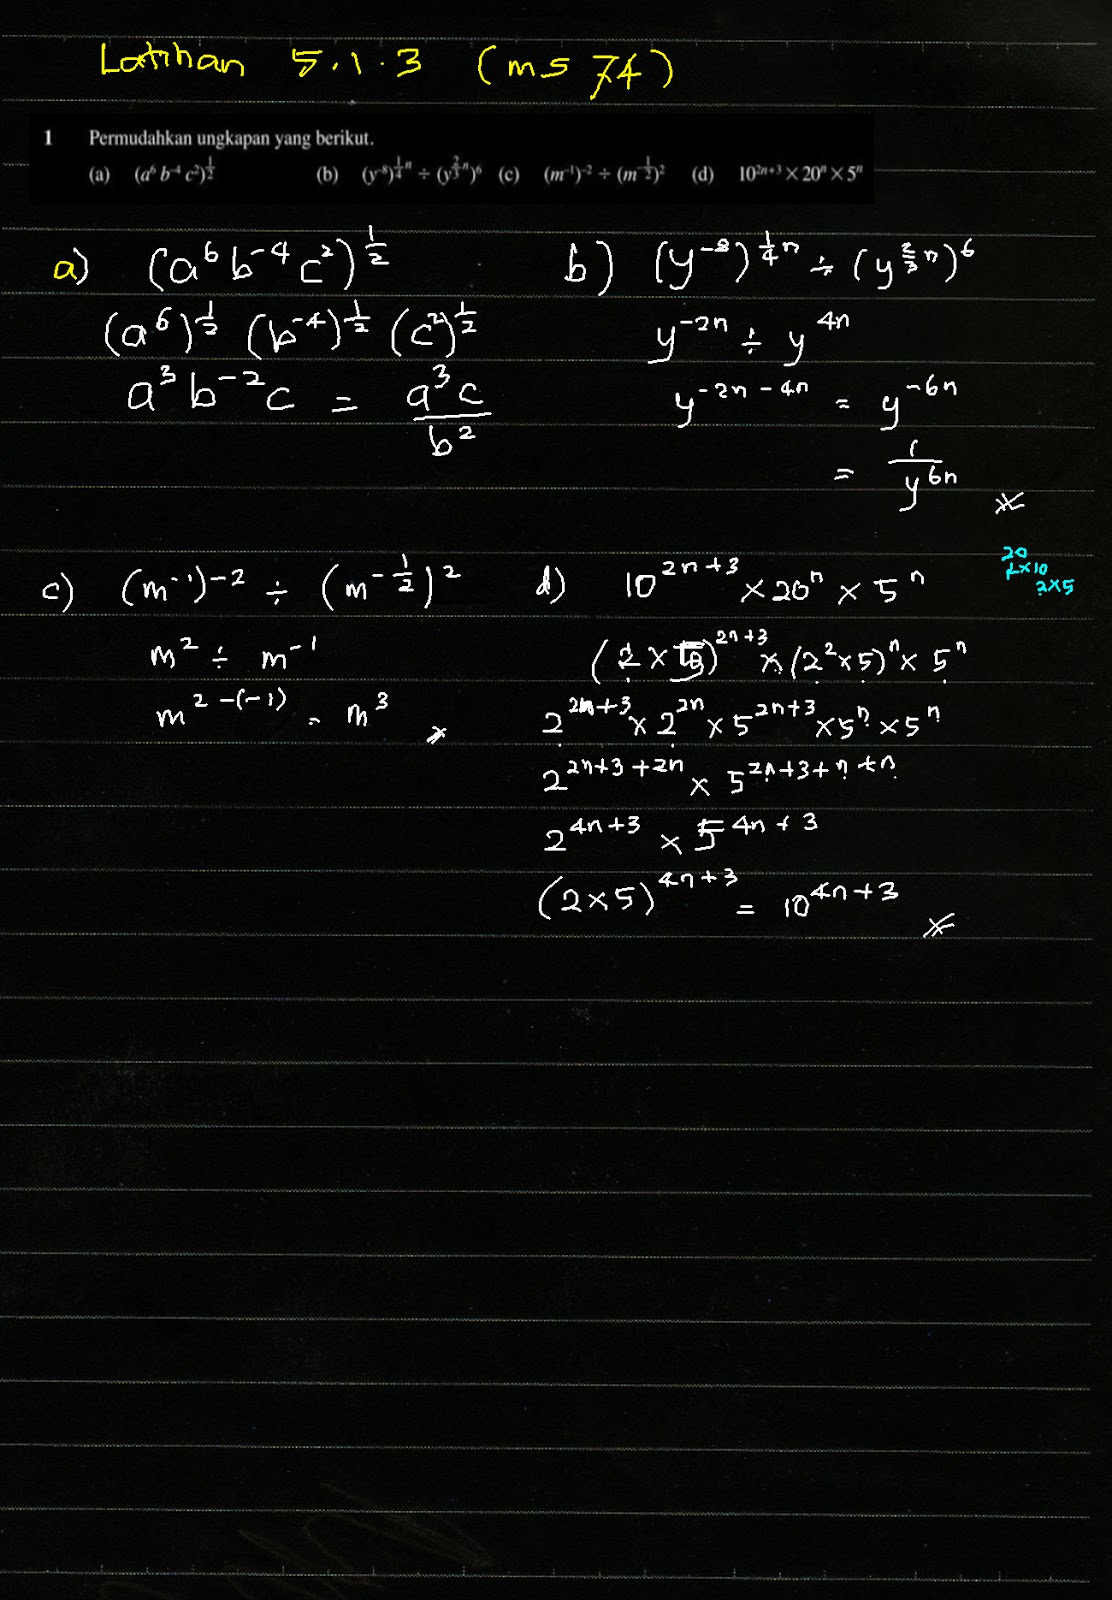 Latihan 5.1.3 (ms 74)
1 Permudahkan ungkapan yang berikut.
(a) (a⁶ b⁻⁴ c²)^(1/2) (b) (y⁻⁸)^(1/4 n) ÷ (y^(2/3 n))⁶ (c) (m⁻¹)⁻² ÷ (m^(-1/2))² (d) 10²ⁿ⁺³ × 20ⁿ × 5ⁿ
a) (a⁶ b⁻⁴ c²)^(1/2)
(a⁶)^(1/2) (b⁻⁴)^(1/2) (c²)^(1/2)
a³ b⁻² c = a³c / b²
b) (y⁻⁸)^(1/4 n) ÷ (y^(2/3 n))⁶
y⁻²ⁿ ÷ y⁴ⁿ
y⁻²ⁿ⁻⁴ⁿ = y⁻⁶ⁿ
= 1 / y⁶ⁿ
c) (m⁻¹)⁻² ÷ (m^(-1/2))²
m² ÷ m⁻¹
m²⁻⁽⁻¹⁾ = m³
d) 10²ⁿ⁺³ × 20ⁿ × 5ⁿ
20
2×10
2×5
(2 × 5)²ⁿ⁺³ × (2² × 5)ⁿ × 5ⁿ
2²ⁿ⁺³ × 2²ⁿ × 5²ⁿ⁺³ × 5ⁿ × 5ⁿ
2²ⁿ⁺³⁺²ⁿ × 5²ⁿ⁺³⁺ⁿ⁺ⁿ
2⁴ⁿ⁺³ × 5⁴ⁿ⁺³
(2×5)⁴ⁿ⁺³ = 10⁴ⁿ⁺³